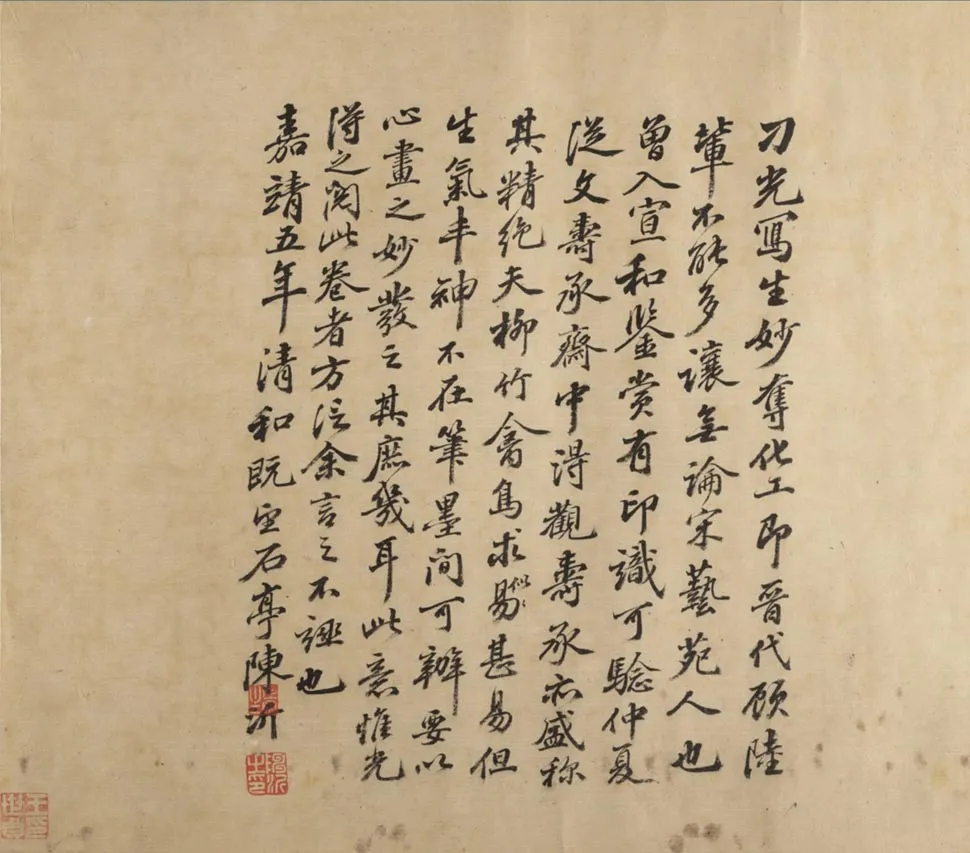 刁光寫生妙奪化工即晉代顧陸
輩不能多讓無論宋藝苑人也
曾入宣和鑒賞有印識可驗仲夏
從文壽承齋中得觀壽承亦盛称
其精絶夫柳竹禽鳥求似易甚易但
生氣丰神不在筆墨間可辦要以
心畫之妙發之其庶幾耳此意惟光
得之閱此卷者方信余言之不誣也
嘉靖五年清和既望石亭陳沂